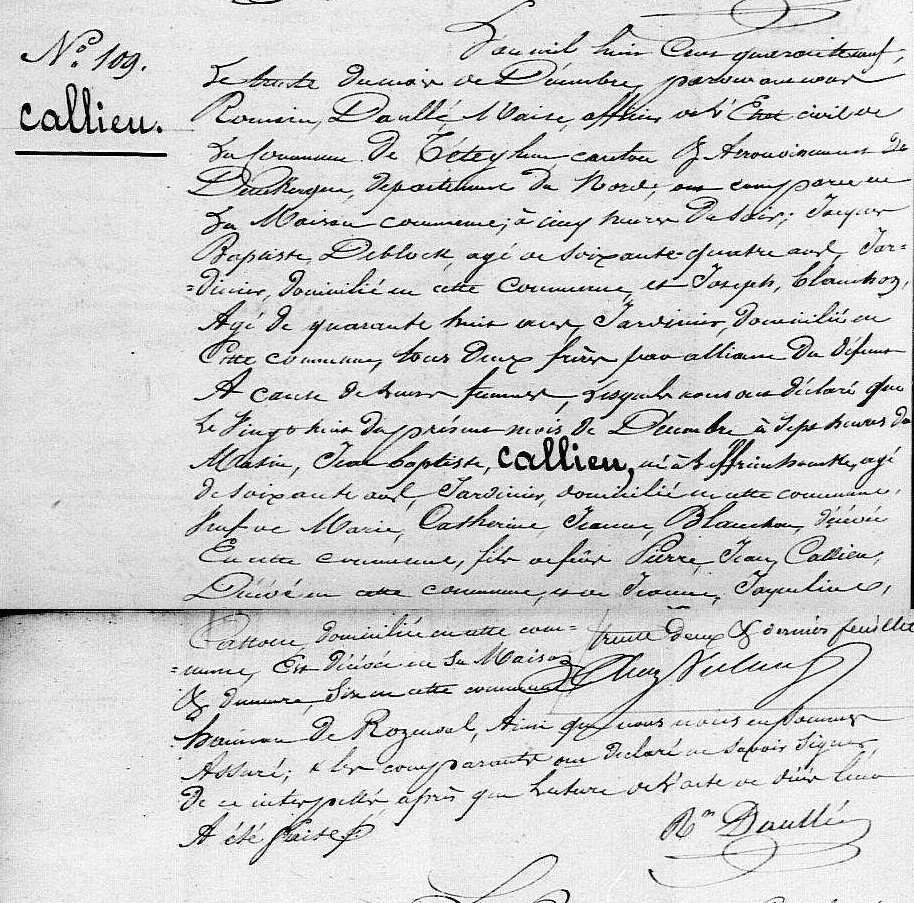 N.º 109.
Callieu.
L'an mil huit Cent quarante neuf,
Le trente du mois de Décembre, pardevant nous
Romain, Daullé Maire, officier de l'Etat civil de
La Commune De Téteghem canton & Arrondissement De
Dunkerque, département du Nord, ont comparu en
La Maison commune, à cinq heures du soir, Jacques
Baptiste, Deblock, agé de soixante-quatre ans, Jar=
=dinier, domicilié en cette commune, et Joseph, Blanchoz,
Agé de quarante huit ans, Jardinier, domicilié en
Cette commune, tous Deux frères par alliance du défunt
A cause de leurs femmes, Lesquels nous ont déclaré que
Le Vingt huit du présent mois de Décembre à sept heures du
Matin, Jean Baptiste, Callieu, né à Leffrinchoucke, agé
de soixante ans, Jardinier, domicilié en cette commune,
Veuf de Marie, Catherine, Jeanne, Blanchoz, décédée
En cette commune, fils de feu Pierre, Jean, Callieu,
Décédé en cette commune, et de Jeanne, Jaqueline,
domiciliée en cette com=
=mune, Est décédé en Sa Maison
& demeure, Sise en cette commune
trente deux & dernier feuillet
hameau De Rozendal, Ainsi que nous nous en sommes
Assuré; & les comparants ont déclaré ne savoir signer,
De ce interpellés après que lecture de l'acte de décès leur
A été faite.
R.ⁿ Daullé